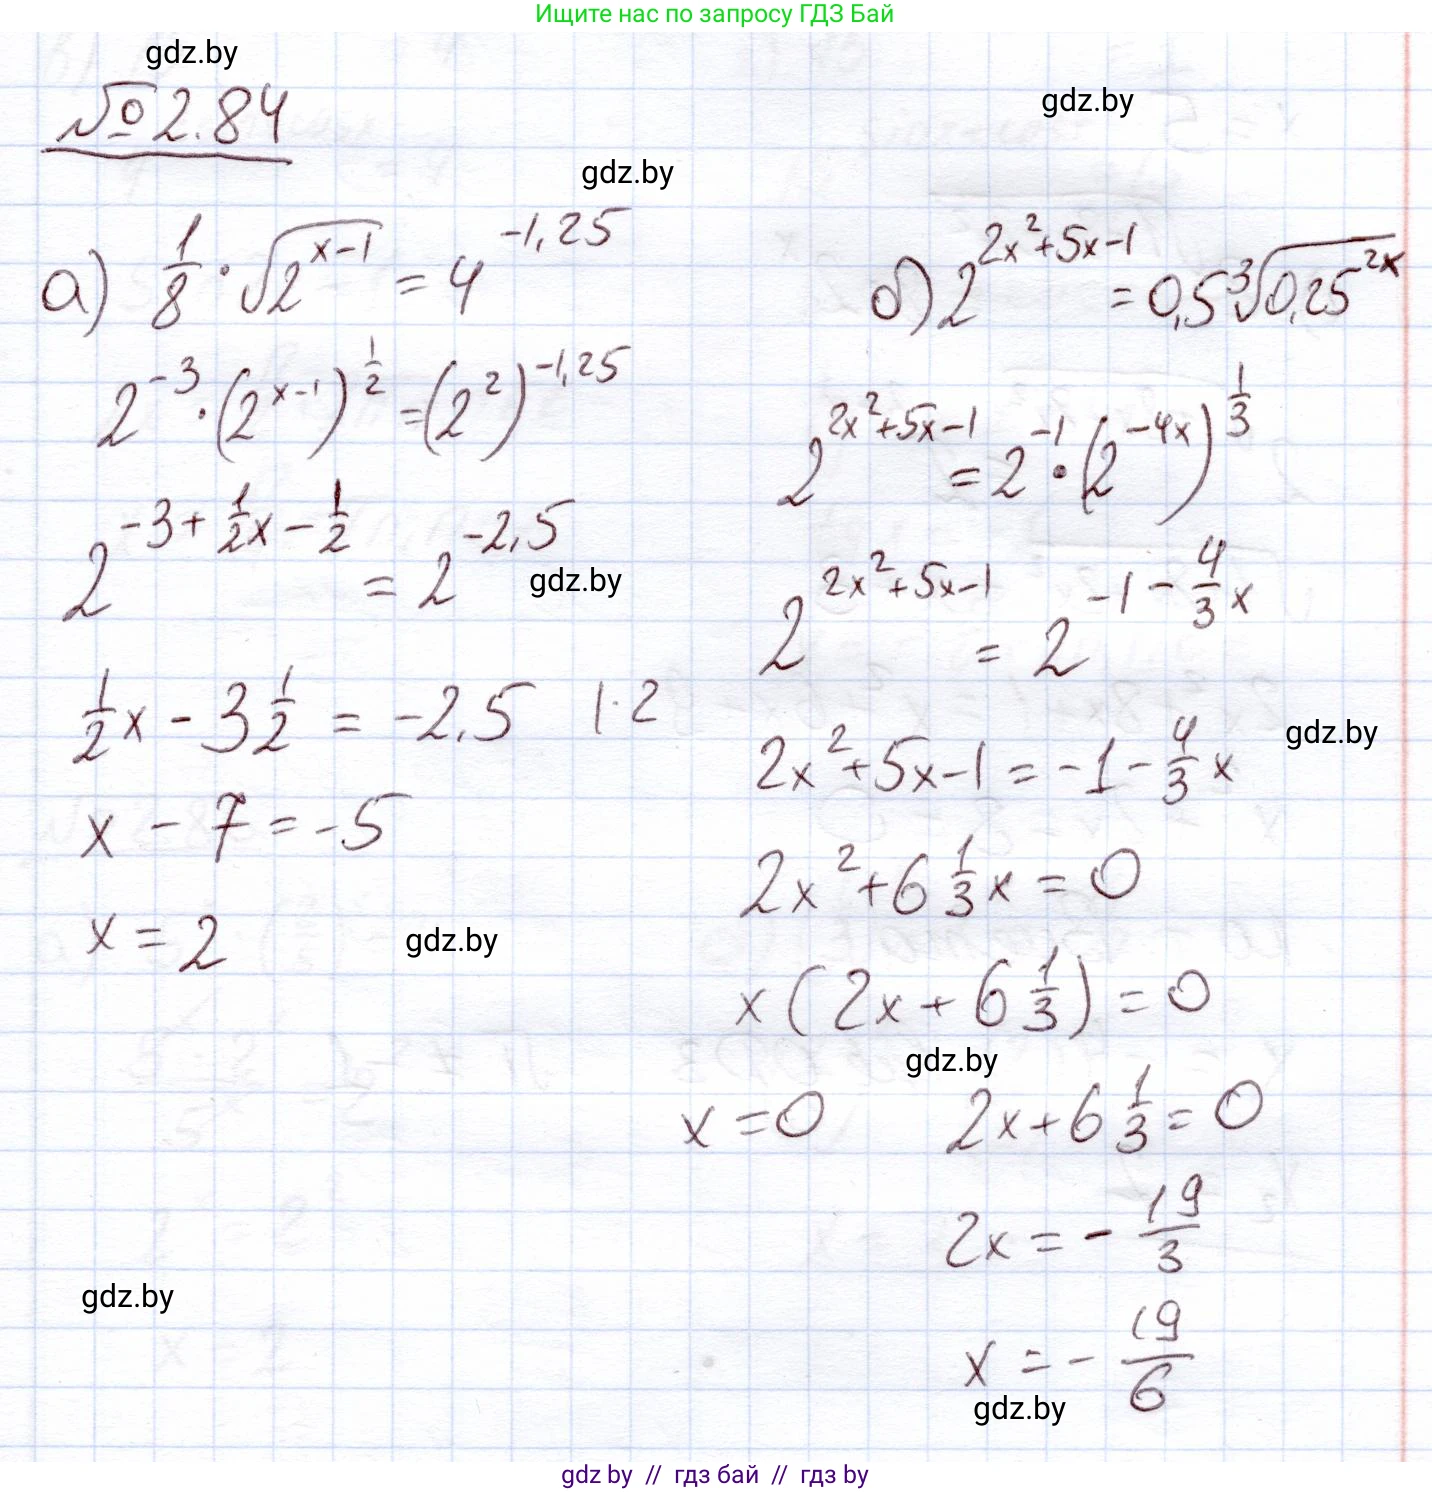 Ищите нас по запросу ГДЗ Бай
gdz.by
№ 2.84
gdz.by
gdz.by
а) 1/8 · √(2^(x-1)) = 4^(-1,25)
2^(-3) · (2^(x-1))^(1/2) = (2^2)^(-1,25)
2^(-3+1/2x-1/2) = 2^(-2,5)
gdz.by
1/2x - 3 1/2 = -2,5 |·2
x - 7 = -5
x = 2
gdz.by
gdz.by
б) 2^(2x^2+5x-1) = 0,5 ∛(0,25^(2x))
2^(2x^2+5x-1) = 2^(-1) · (2^(-4x))^(1/3)
2^(2x^2+5x-1) = 2^(-1-4/3x)
gdz.by
2x^2+5x-1 = -1-4/3x
2x^2+6 1/3x = 0
x(2x+6 1/3) = 0
gdz.by
x = 0 2x+6 1/3 = 0
2x = -19/3
x = -19/6
gdz.by
gdz by // гдз бай // гдз by